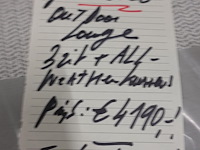 OUTDOOR
Lounge
3zit + ALL-
WEATHER kussens
Prijs: € 4190,-!